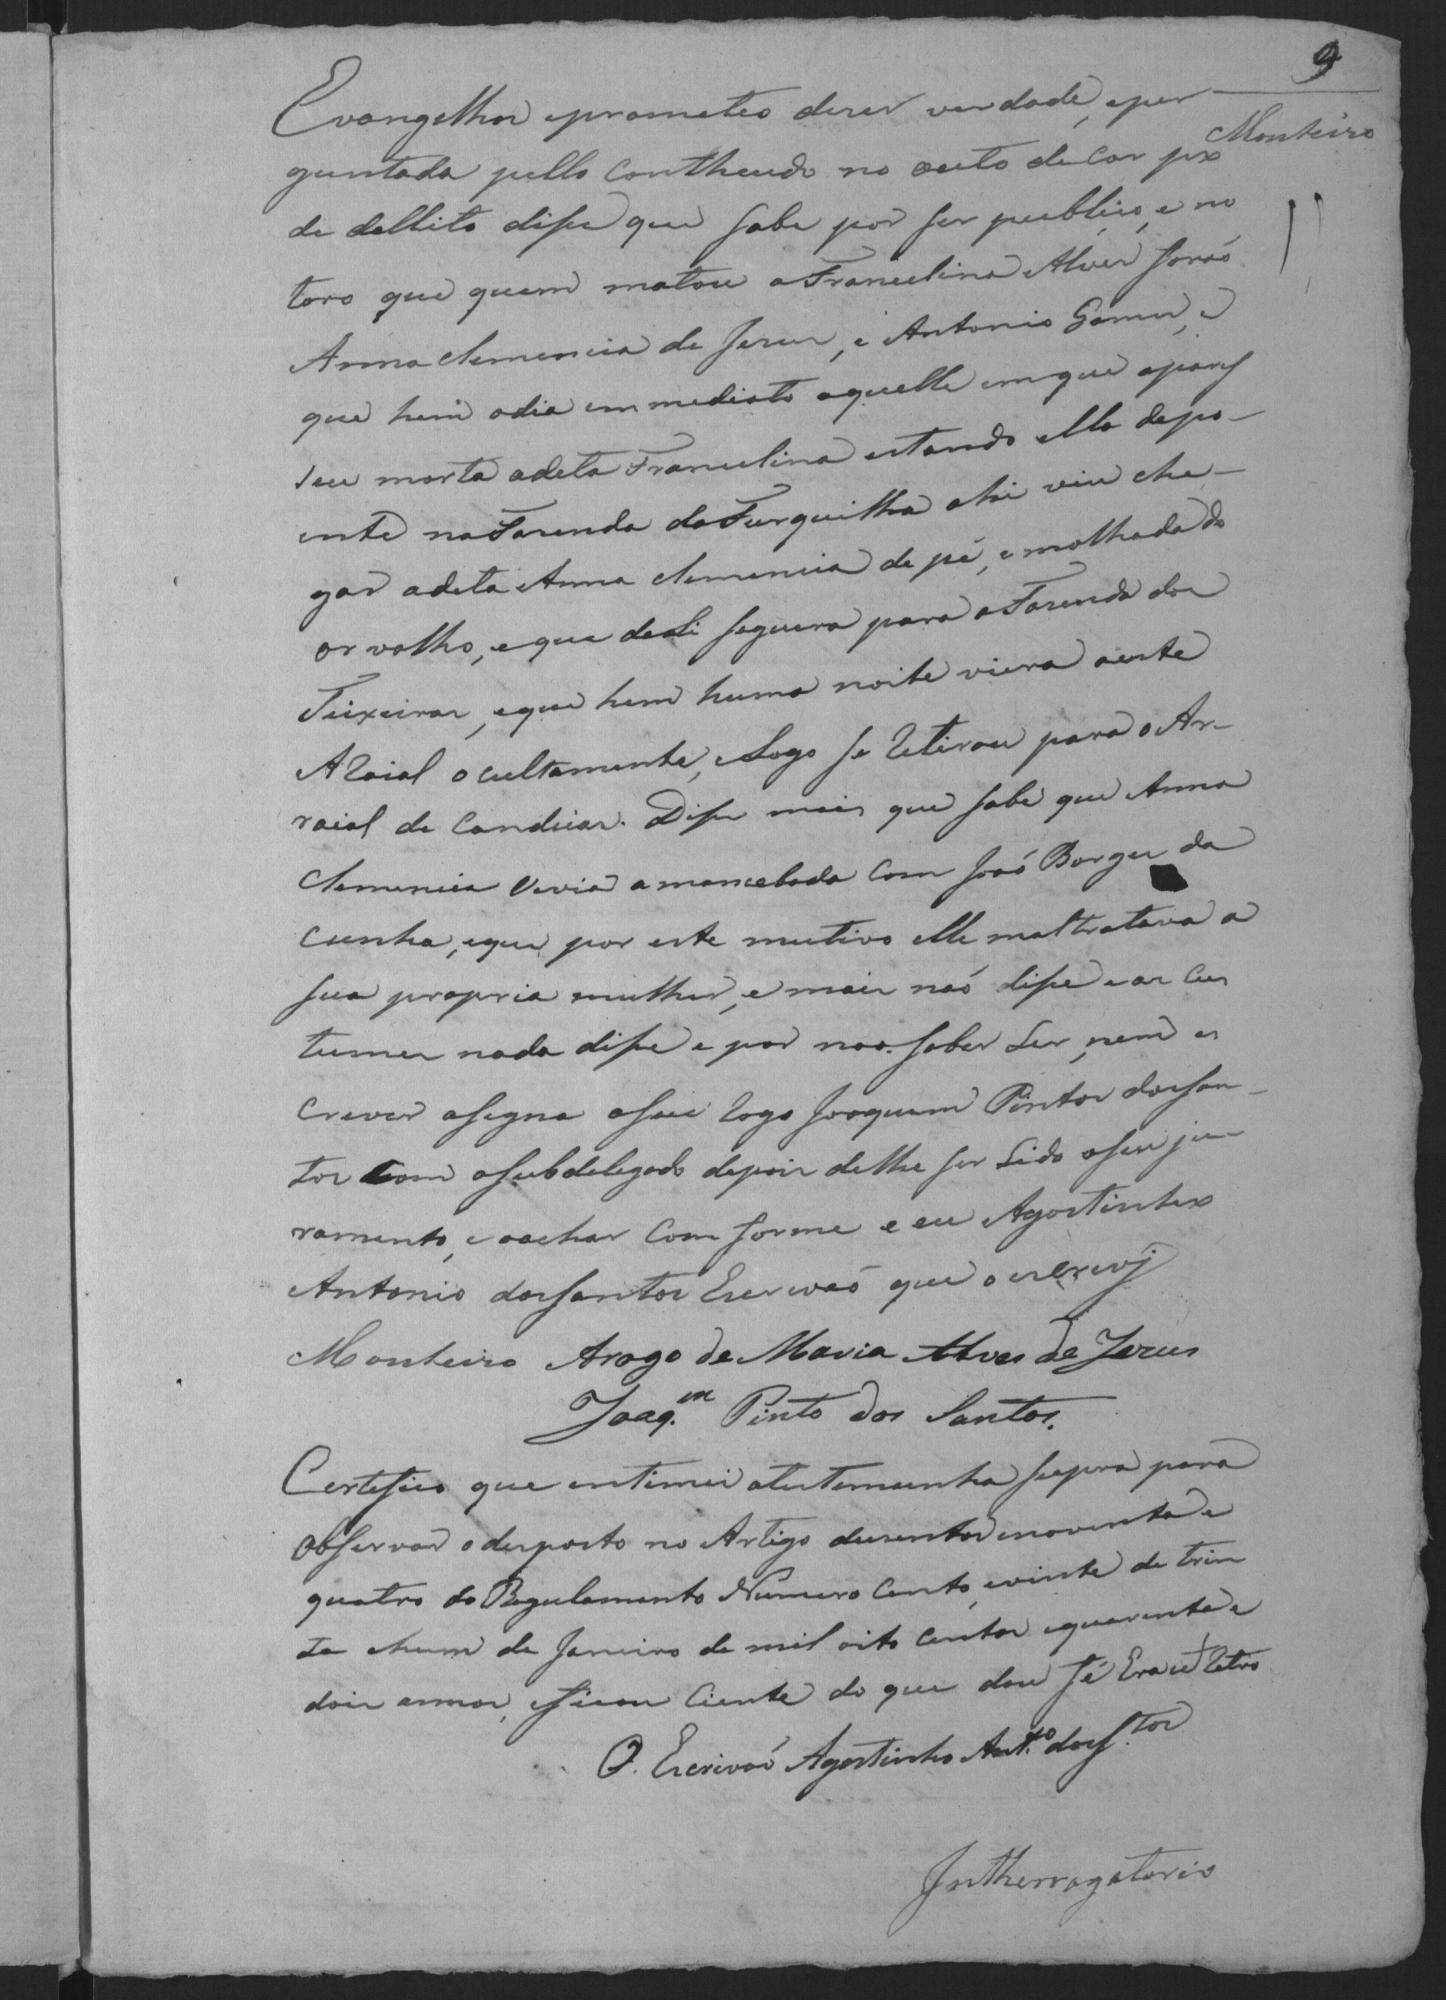 9
Monteiro
Evangelhos eprometeo diser verdade, eper
guntada pello Contheudo no auto de Cor po
de dellito dise que sabe por ser publico, e no
toro que quem matou a Francelina Alves foraó
Anna Clemencia de Jesus, e Antonio Gomes, e
que hem odia emmediato aquelle emque apares
seu morta adeta Francelina estando ella depo-
ente na Fasenda da Furquilha ahi viu che-
gar adeta Anna Clemencia de pé, e molhada do
orvalho, eque dali seguera para a Fasenda dos
Teixeiras, eque hem huma noite viera aeste
ARaial ocultamente, elogo se Retirou para o Ar-
raial de Candeias. Dise mais que sabe que Anna
Clemencia vevia amancebada Com Joaó Borges da
Cunha, eque por este mutivo elle maltratava a
sua propria mulher, e mais naó dise e aos Cus
tumes nada dise e por nao saber Ler, nem es
Crever asegna aseu Rogo Joaquim Pintos dos San-
tos Com osubdelegado depois delhe ser Lido oseu ju-
ramento, e oachar Com forme e eu Agostinho
Antonio dos Santos Escrivaó que o escrevj
Monteiro Arogo de Maria Alves de Jesus
Joaq.m Pinto dos Santos.
Certefico que entimei atestemunha supra para
observar o desposto no Artigo dusentos enoventa e
quatro do Regulamento Numero Cento, evinte de trin
ta ehum de Janeiro de mil oito Centos equarenta e
dois annos, eficou Ciente do que dou fé Era ut Retro
O. Escrivaó Agostinho Ant.o dos S.tos
Intherrogatorio